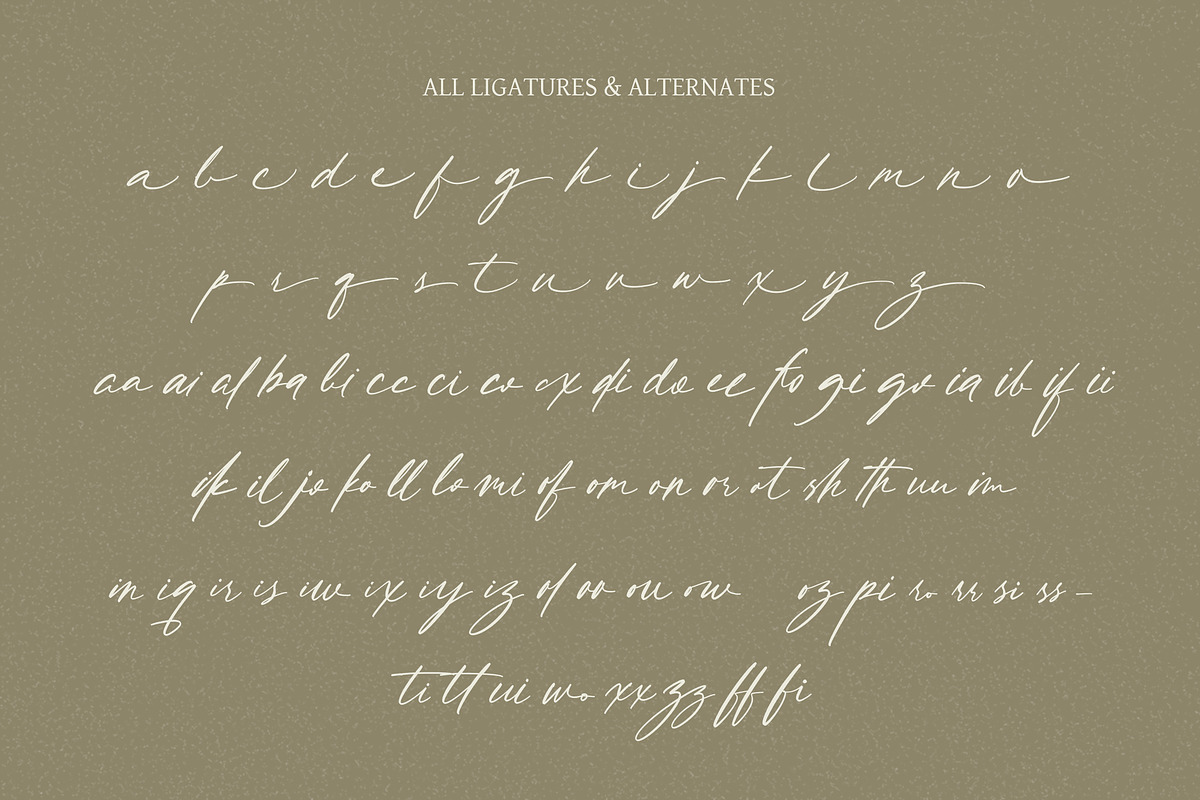 ALL LIGATURES & ALTERNATES
a b c d e f g h i j k l m n o
p r q s t u v w x y z
aa ai al ba bi cc ci co cx di do ee fo gi go ia ib if ii
ik il jo ko ll lo mi of om on or ot sh th uu im
in iq ir is iw ix iy iz ol oo ou ow oz pi ro rr si ss -
ti tt ui wo xx zz ff fi